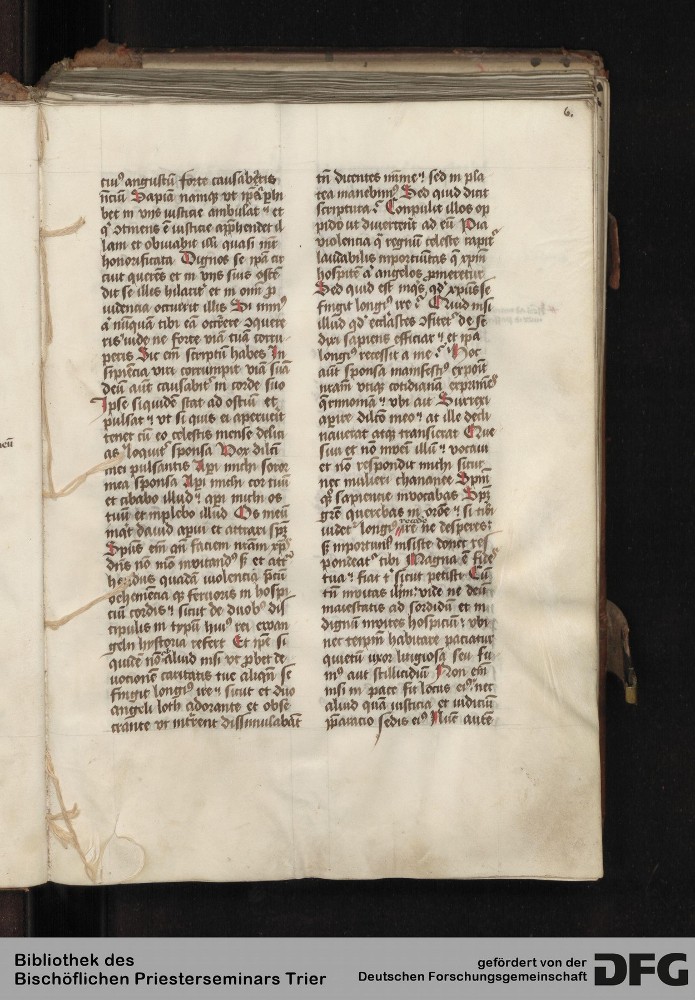 6.
cius angustū forte causaberis
nēciū Sapiam namqꝫ ut
bet in vijs iusticie ambulat et
qͥ ꝯtinens ē iusticie apprehendet il
lam et obviabit illi quasi
honorificata Dignos se ipa cir
cuit querēs et in vijs suis ostē
dit se illis hilarit et in omī ꝓ
videntia occurrit illis Si
a nūquā tibi eā occurrere ꝯquere
ris vide ne forte via tua corru
peris Sic em scriptū habes In
sipiēcia viri corrumpit viā suā
deū aūt causabit in corde suo
Ipse siquidē stat ad ostiū et
pulsat et ut si quis ei aperuerit
cenet cū eo celestis mense delici
as loquit sponsa Vox dilcti
mei pulsantis Api michi soror
mea sponsa Api michi cor tuū
et cibabo illud api michi os
tuū et implebo illud Os meū
inqt david apui et attraxi spm
Spūs em an faciem nram xps
dns nō nō invitandus sꝫ et attͣ
hendus quadā violentia
vehemētia qꝫ fervoris in hospi
ciū cordis sicut de duobꝫ dis
cipulis in typum huiꝰ rei ewan
gelij hystoria refert Et ipe si
quidē nō aliud nisi ut ꝓbet de
vocionē caritatis tue aliqn se
fingit longiꝰ ire sicut et duo
angeli loth adorante et obse
crante ut intrent dissimulabāt
tn dicentes mīme sed in pla
tea manebimꝰ Sed quid dicit
scriptura Compulit illos op
pido ut diverterēt ad eū Pia
violentia qͣ regnū celeste capit
laudabilis inportūnitas qͣ xpm
hospitē angelos ꝓmeretur
Sed quid est inqs qd xpūs se
fingit longiꝰ ire Quid nisi
illud qd ecclastes ꝯfitet de se
dixi sapiens efficiar et ipa
longiꝰ recessit a me Hoc
aūt sponsa manifestiꝰ exponit
nram utiqꝫ cotidianā exprimēs
querimoniā ubi ait Surrexi
aperire dilcō meo at ille decli
naverat atqꝫ transierat Que
sivi et nō inveni illū vocavi
et nō respondit michi sicut
nec mulieri chananee Spm
qͥ sapiencie invocabas Spm
grē querebas in orōe si tibi
videt longiꝰ ire recedo ne desperes
sꝫ inportunꝰ insiste donec res
pondeat tibi Magna ē fides
tua fiat tͥ sicut petisti Cū
tn invitas illm vide ne deū
maiestatis ad sordidū et in
dignū invites hospiciū ubi
nec temp habitare paciatur
quietū uxor litigiosa seu fu
mꝰ aut stillicidiū Non em
nisi in pace fit locus eiꝰ nec
aliud quā iusticia et iudiciū
ꝑparatio sedis eiꝰ Nunc autē
Bibliothek des
Bischöflichen Priesterseminars Trier
gefördert von der
Deutschen Forschungsgemeinschaft
DFG